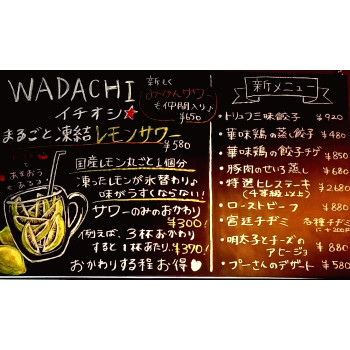 WADACHI
イチオシ★
新しく
みかんサワー
も仲間入り♪
¥650
まるごと凍結レモンサワー
¥580
あまおう
もあるよ
国産レモン丸ごと1個分
凍ったレモンが氷替わり♪
味がうすくならない!
サワーのみのおかわり
¥300!
例えば、3杯おかわり
すると1杯あたり..¥370!
おかわりする程お得
新メニュー
・トリュフ三昧餃子 ¥920
・華味鶏の蒸し餃子 ¥480
・華味鶏の餃子チゲ ¥850
・豚肉のせいろ蒸し ¥680
・特選ヒレステーキ ¥2680
(4等級以上)
・ローストビーフ ¥880
・宮廷チヂミ 各種チヂミ
に+200円
・明太子とチーズの
アヒージョ ¥880
・プーさんのデザート ¥580